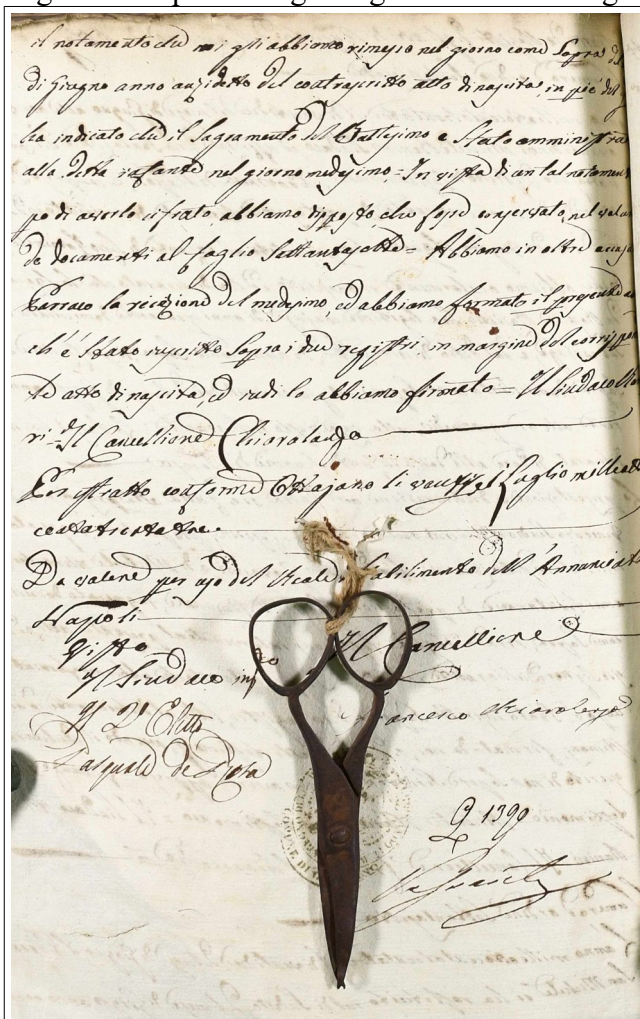 il notamento che noi gli abbiamo rimesso nel giorno come Sopra
di Giugno anno anzidetto del controscritto atto di nascita, in piè del
ha indicato che il Sagramento del Battesimo è Stato amministra
alla detta infante nel giorno medesimo = In vista di un tal notamen
po di averlo cifrato, abbiamo disposto, che fosse conservato, nel volu
de documenti al foglio Settantasette = Abbiamo in oltre accus
Parraco la recezione del medesimo, ed abbiamo formato il presente a
ch'è Stato inscritto Sopra i due registri, in margine del corrispon
te atto di nascita, ed indi lo abbiamo firmato = Il Sindaco
ri = Il Cancelliere Chiarolanza
Per estratto conforme Ottajano li Luglio mille ott
centotrentatre.
Da valere per uso del Reale Stabilimento dell'Annunciat
Napoli
Visto
Il Sindaco
Il Cancelliere
Il 2º Eletto
Francesco Chiarolanza
Pasquale de Rosa
1390